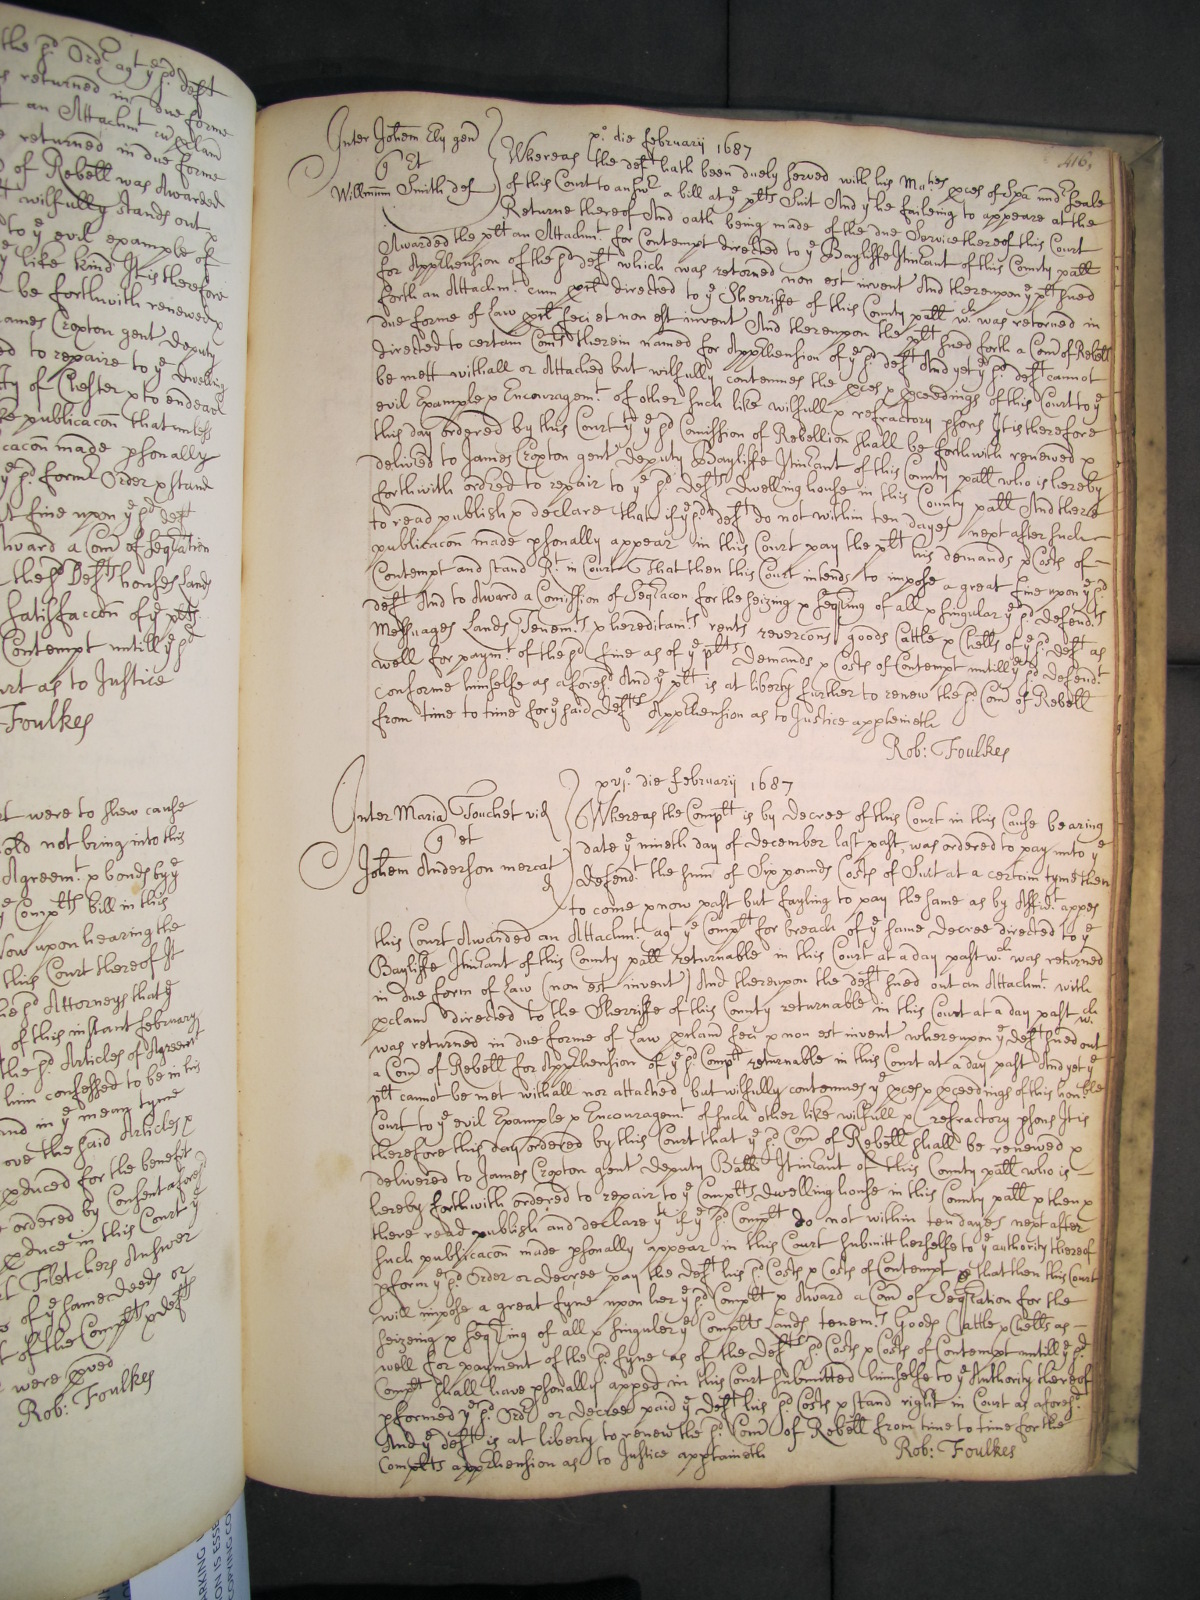 the sd Ordr agt ye sd deft
returned in due forme
an Attachmt cu pclam
returned in due forme
of Rebell was Awarded
wilfully stands out
to ye evil example of
like kind It is therefore
be forthwith renewed x
James Croxton gent deputy
to repaire to ye dwelling
of Chester x to endeavr
publicacon that unless
cacon made psonally
ye sd formr Order x stand
fine upon ye sd deft
Award a Comn of Seqration
the sd Defts houses Lands
satisfaccon of ye plts
Contempt untill ye sd
Court as to Justice
Foulkes
were to shew cause
not bring into this
Agreemt x bonds by ye
Complts bill in this
Now upon hearing the
this Court thereof It
Attorneys that ye
of this instant February
the sd Articles of Agreemt
him confessed to be in his
and in ye mean tyme
ove the said Articles x
pduced for the benefit
ordered by Consent aforesd
pduce in this Court ye
Fletchers Answer
of ye same deeds or
of the Complt x deft
were pved
Rob: Foulkes
416,
Inter Johem Ely gen
q Et
Willmum Smith def
xo. die February 1687
Whereas the deft hath been duely served with his Maties pces of Spa undr seale
of this Court to answr a bill at ye plts Suit And ye he faileing to appeare at the
Returne thereof And oath being made of the due Service thereof this Court
Awarded the plt an Attachmt for Contempt directed to ye Bayliffe Itinant of this County pall
for Apprhension of the sd deft which was returned non est invent And thereupon ye plt sued
forth an Attachmt cum pcl directed to ye Sherriffe of this County pall wch was returned in
due forme of Law pcl feci et non est invent And thereupon the plt sued forth a Comn of Rebell
directed to certain Comrs therein named for Apprhension of ye sd deft And yet ye sd deft cannot
be mett withall or Attached but wilfully contemnes the pces x pceedings of this Court to ye
evil Example x Encouragemt of other such like wilfull x refractory psons It is therefore
this day ordered by this Court yt ye sd Comission of Rebellion shall be forthwith renewed x
delived to James Croxton gent deputy Bayliffe Itinant of this County pall who is hereby
forthwith ordred to repair to ye sd defts dwelling house in this County pall And there
to read publish x declare that if ye sd deft do not within ten dayes next after such
publicacon made psonally appear in this Court pay the plt his demands x Costs of
Contempt and stand Rt in Court That then this Court intends to impose a great fine upon ye sd
deft And to Award a Comission of Seqracon for the seizing x seqring of all x singular ye sd defendts
Messuages Lands Tenemts x hereditamts rents revercons goods Cattle x Chells of ye sd deft as
well for paymt of the sd fine as of ye plts demands x Costs of Contempt untill ye sd defendt
conforme himselfe as aforesd And ye plt is at liberty further to renew the sd Comn of Rebell
from time to time for ye said defts Apprhension as to Justice apptaineth
Rob: Foulkes
xvjo. die February 1687
Inter Maria Touchet vid
q et
Johem Anderson mercat
d
Whereas the Complt is by decree of this Court in this Cause bearing
date ye nineth day of December last past was ordered to pay unto ye
defendt the sum of Six pounds Costs of Suit at a certain tyme then
to come x now past but fayling to pay the same as by Affidt appes
this Court Awarded an Attachmt agt ye Complt for breach of ye same decree directed to ye
Bayliffe Itinant of this County pall returnable in this Court at a day past wch was returned
in due form of Law (non est invent) And thereupon the deft sued out an Attachmt with
pclam directed to the Sherriffe of this County returnable in this Court at a day past wch
was returned in due forme of Law pclam feci x non est invent whereupon ye deft sued out
a Comn of Rebell for Apprhension of ye sd Complt returnable in this Court at a day past And yet ye
plt cannot be met withall nor attached but wilfully contemnes ye pces x pceedings of this honoble
Court to ye evil Example x Encouragemt of such other like wilfull x refractory psons It is
therefore this day ordered by this Court that ye sd Comn of Rebell shall be renewed x
delivered to James Croxton gent deputy Balli Itinant of this County pall who is
hereby forthwith ordered to repair to ye Complts dwelling house in this County pall x then x
there read publish and declare yt if ye sd Complt do not within ten dayes next after
such publicacon made psonally appear in this Court submitt herselfe to ye authority thereof
pform ye sd Order or decree pay the deft his sd Costs x Costs of Contempt that then this Court
will impose a great fyne upon her ye sd Complt x Award a Comn of Seqration for the
seizeing x seqring of all x singuler ye Complts Lands tenemts Goods Cattle x Chells as
well for payment of the sd fyne as of the defts sd Costs x Costs of Contempt untill ye sd
Complt shall have psonally apped in this Court submitted himselfe to ye Authority thereof
pformed ye sd Ordr or decree paid ye deft his sd Costs x stand right in Court as aforesd
And ye deft is at liberty to renew the sd Comn of Rebell from time to time for the
Complts apprhension as to Justice apptaineth
Rob: Foulkes